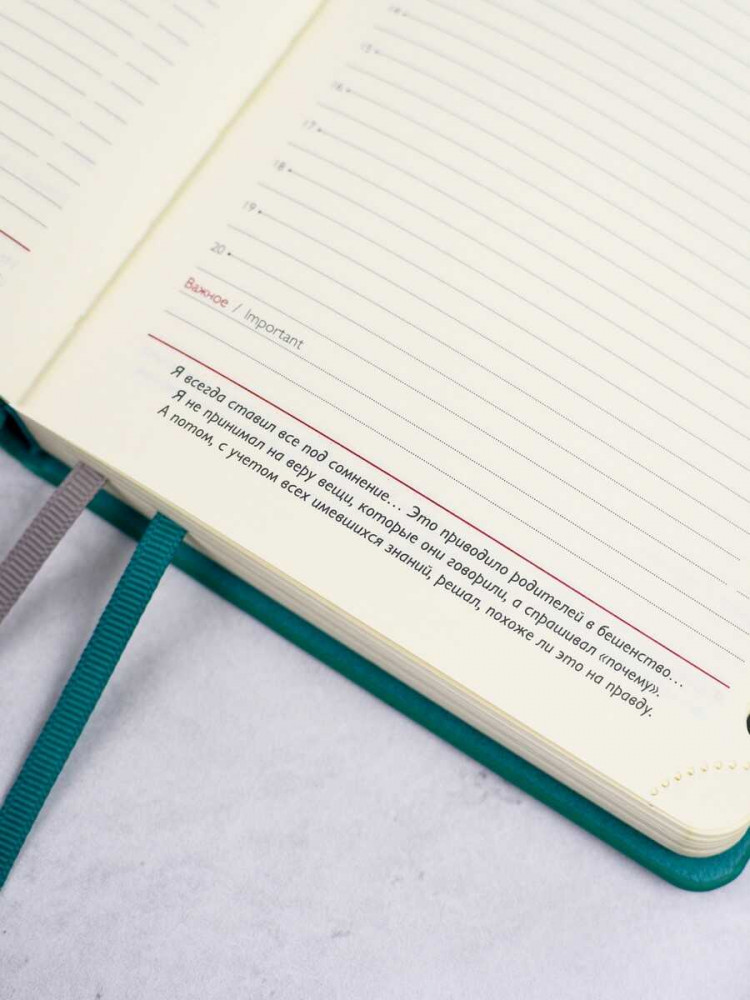 14
15
16
17
18
19
20
Важное / Important
Я всегда ставил все под сомнение... Это приводило родителей в бешенство...
Я не принимал на веру вещи, которые они говорили, а спрашивал «почему».
А потом, с учетом всех имевшихся знаний, решал, похоже ли это на правду.